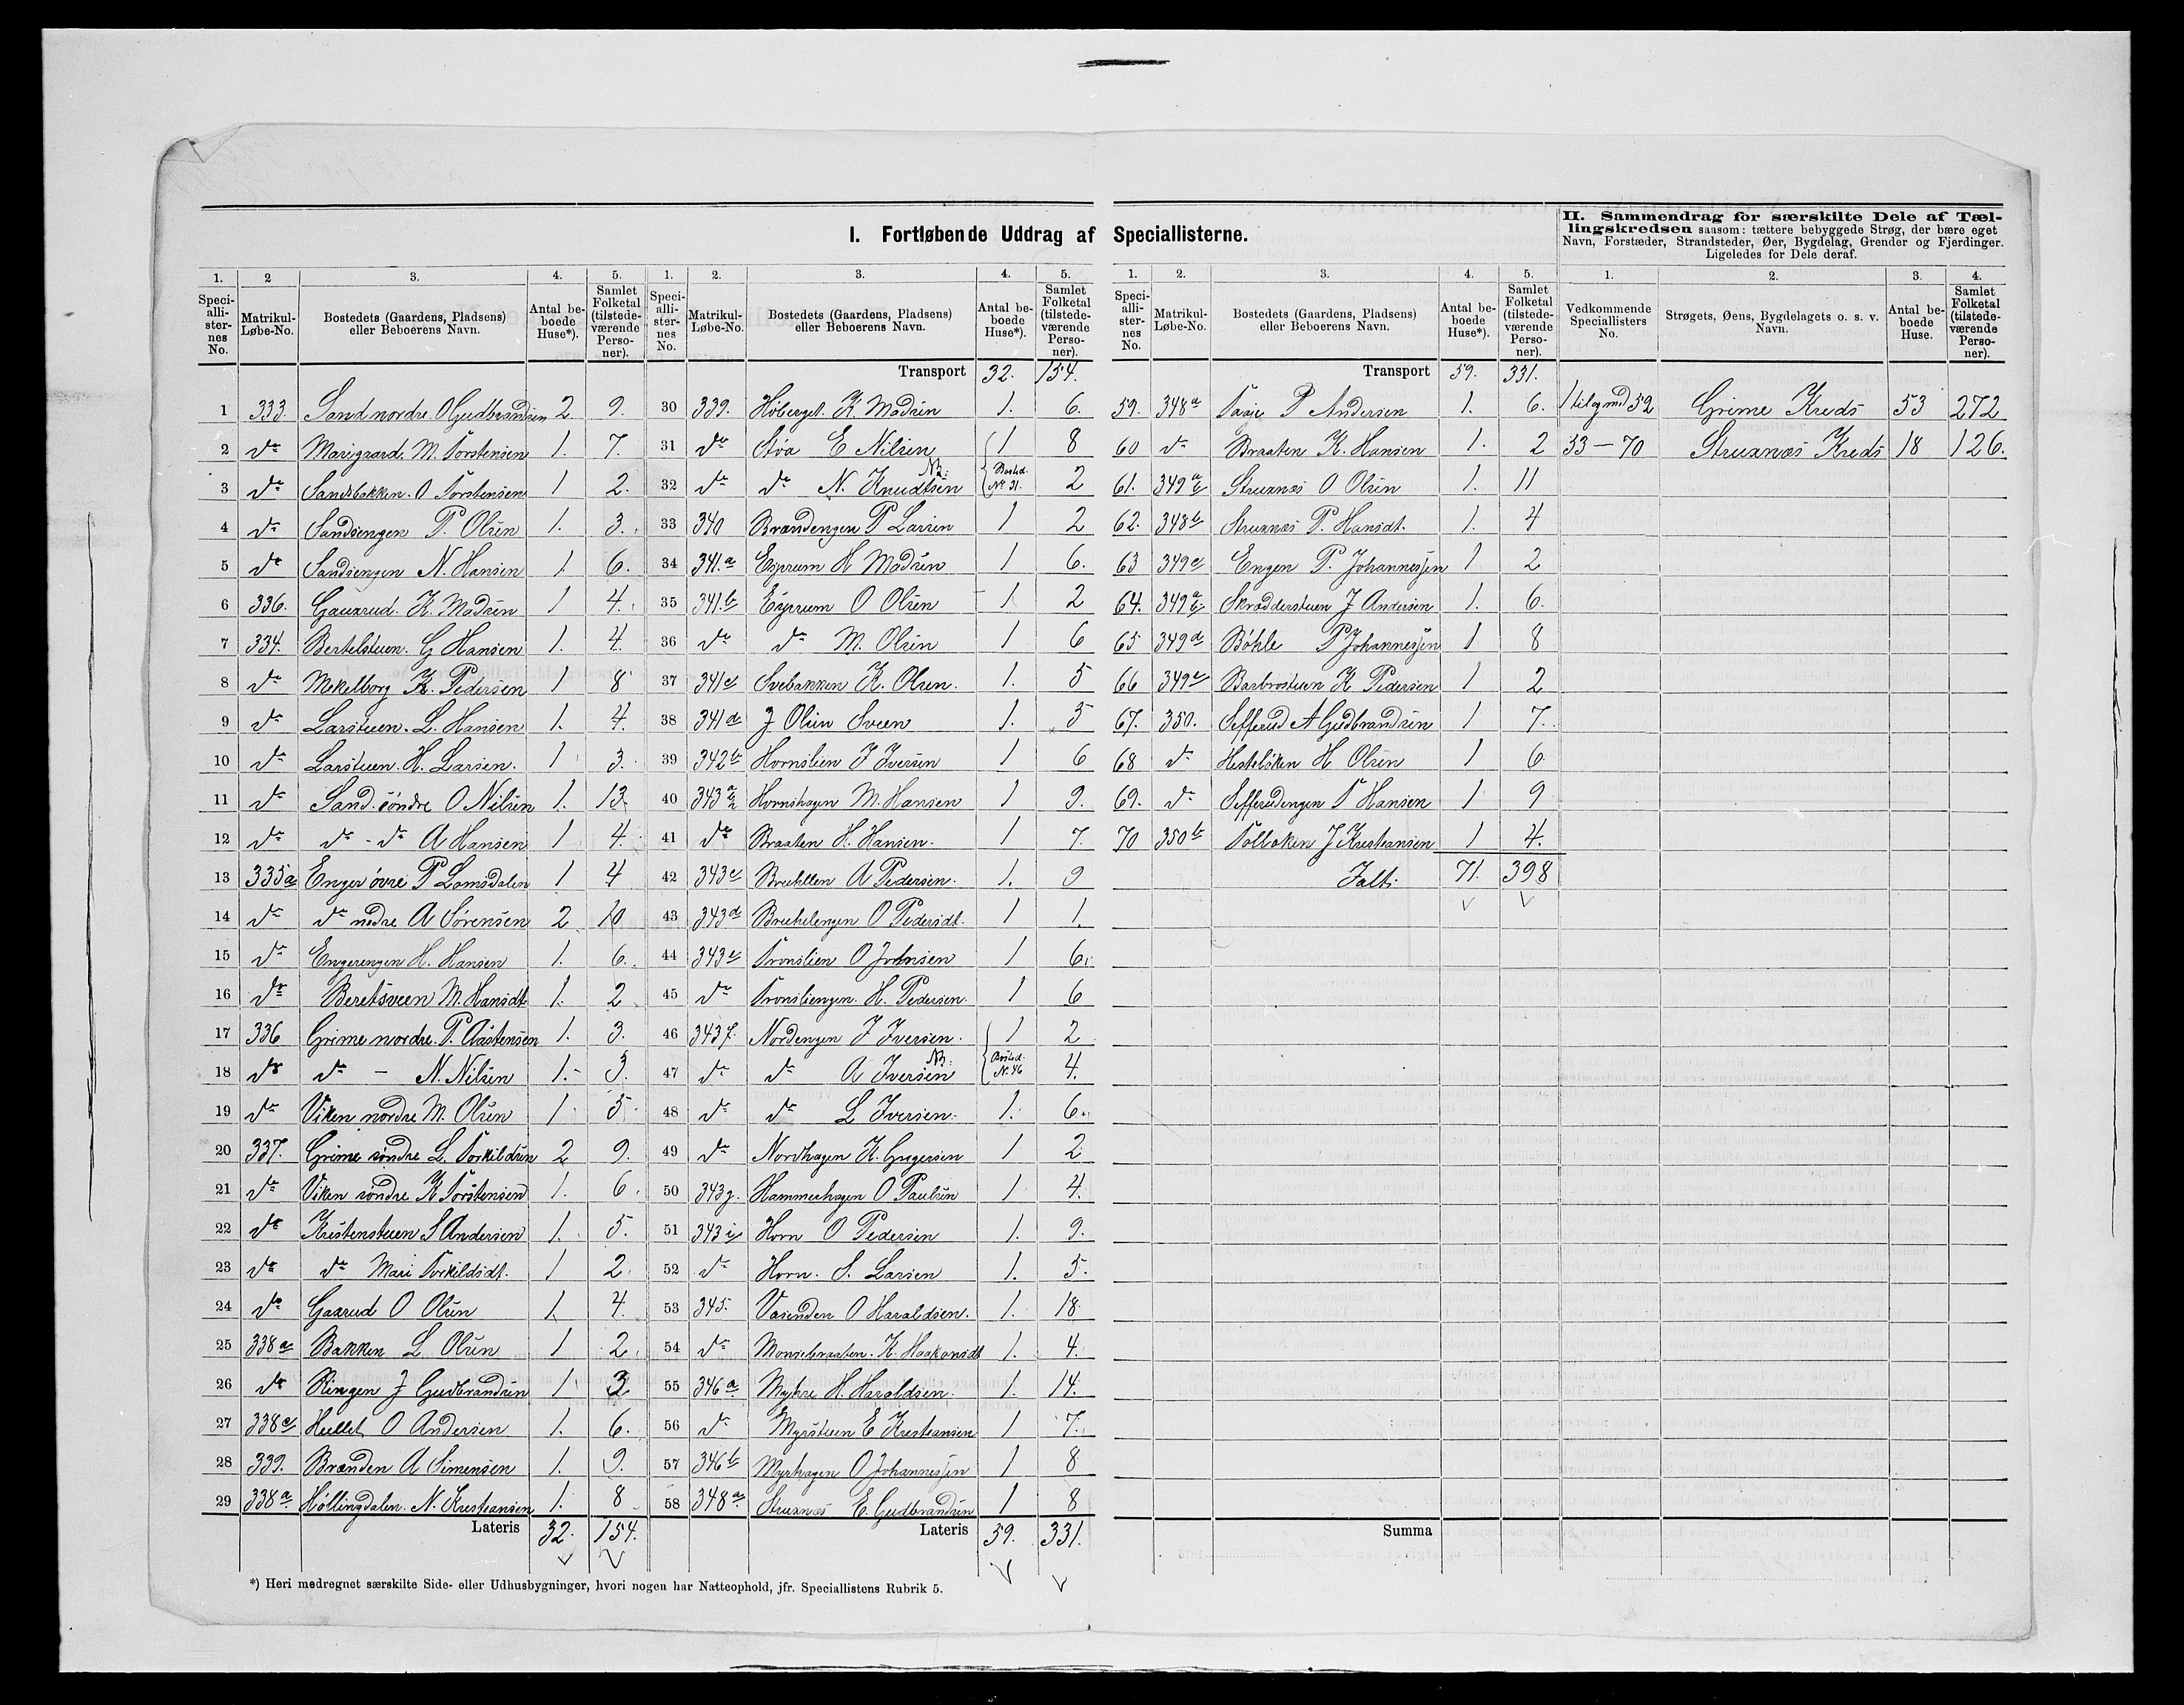 I. Fortløbende Uddrag af Speciallisterne.
II. Sammendrag for særskilte Dele af Tællingskredsen saasom: tættere bebyggede Strøg, der bære eget
Navn, Forstæder, Strandsteder, Øer, Bygdelag, Grender og Fjerdinger.
Ligeledes for Dele deraf.
1. 2 3. 4. 5.
Speciallisternes No. Matrikul-Løbe-No. Bostedets (Gaardens, Pladsens) eller Beboerens Navn. Antal beboede Huse*). Samlet Folketal (tilstedeværende Personer).
1 333. Sand nordre. O Gudbrandsen 2. 9.
2 do Marigaard. M. Torstensen 1. 7.
3 do Sandsbakken. O Torstensen 1 2.
4 do Sandsengen P. Olsen 1. 3.
5 do Sandsengen N. Hansen 1. 6.
6 336. Gauxrud. K. Madsen 1 4.
7 334. Bertelstuen. G Hansen 1. 4.
8 do Mekelborg K. Pedersen 1 8
9 do Larstuen. L. Hansen 1. 4.
10 do Larstuen. H. Larsen. 1 3.
11 do Sand. søndre O Nilsen 1. 13.
12 do do - do A Hansen 1 4.
13 335a Enger øvre P Lomsdalen 1 4
14 do do nedre A Sørensen 2 10
15 do Engerengen H. Hansen 1. 6.
16 do Beretsveen M. Hansdt. 1. 2
17 336 Grime nordre. P. Aastensen 1. 3.
18 do do - N. Nilsen 1.- 3.
19 do Viken nordre M. Olsen 1 5
20 337. Grime søndre L. Torkildsen 2 9.
21 do Viken søndre K Torstensen 1. 6.
22 do Kristenstuen S Andersen 1. 5.
23 do do Mari Torkildsdt. 1 2.
24 do Gaarud O Olsen 1. 4.
25 338a Bakken L Olsen 1 2.
26 do Ringen J Gudbrandsen 1 3
27 338c Hullet O Andersen 1. 6.
28 339. Brænden A Simensen 1. 9.
29 338a. Høllingdalen. N. Kresteansen 1. 8
Lateris 32. 154.
1. 2. 3. 4. 5.
Speciallisternes No. Matrikul-Løbe-No. Bostedets (Gaardens, Pladsens) eller Beboerens Navn. Antal beboede Huse*). Samlet Folketal (tilstedeværende Personer).
Transport 32. 154.
30 339. Høberget. K. Madsen 1. 6.
31 do Støa E Nilsen 1 8
32 do do N. Knudtsen NB. Bosted. No 31. 2
33 340 Brændengen P Larsen 1 2
34 341.a Esprum H Madsen 1 6.
35 341.b Esprum O Olsen 1 2
36 do do M. Olsen 1 6
37 341c Svebakken K. Olsen. 1. 5
38 341d J Olsen Sveen 1. 5
39 342b Hornslien J Iversen 1 6
40 343a Hornshagen M. Hansen 1 9.
41 do Braaten H. Hansen. 1 7.
42 343c Bruhllen A Pedersen. 1. 9
43 343d Bruhelengen O Pedersdt. 1 1.
44 343e Tronslien O Johnsen 1 6.
45 do Tronsliengen. H. Pedersen. 1 6
46 343f. Nordengen J Iversen. 1 2
47 do do A Iversen NB. Bosted. No. 46 4.
48 do do L Iversen. 1. 6.
49 do Nordhagen K. Gregersen 1 2
50 343g. Hammerhagen O Paulsen 1 4.
51 343i Horn O Pedersen 1. 9.
52 do Horn. S. Larsen 1. 5.
53 345. Vasenden O Haraldsen. 1. 18.
54 do Monsebraaten. K. Haakonsdt 1. 4.
55 346a Myhre H. Haraldsen. 1. 14.
56 do Myrstuen E Kresteansen 1 7.
57 346b Myrhagen O Johannessen 1 8
58 348a Struxnæs E. Gudbrandsen 1 8
Lateris 59. 331.
1. 2. 3. 4. 5.
Speciallisternes No. Matrikul-Løbe-No. Bostedets (Gaardens, Pladsens) eller Beboerens Navn. Antal beboede Huse*). Samlet Folketal (tilstedeværende Personer).
Transport 59. 331.
59. 348a P Andersen 1. 6.
60 do Braaten K. Hansen 1. 2
61. 349a Struxnæs O Olsen 1. 11
62. 348b Struxnæs P. Hansdt. 1. 4
63 349c Engen P. Johannessen 1 2
64. 349a Skrædderstuen J Andersen 1. 6.
65 349d Bøhle P Johannessen 1 8
66 349e Barbrostuen K Pedersen 1 2
67. 350. Sefferud A Gudbrandsen 1 7.
68 do H Olsen 1 6
69. do Sefferudengen T Hansen 1 9
70 350b J Kresteansen 1 4.
Ialt. 71. 398
Summa
1. 2. 3. 4.
Vedkommende Speciallisters No. Strøgets, Øens, Bygdelagets o. s. v. Navn. Antal beboede Huse. Samlet Folketal (tilstedeværende Personer).
1 til og md 52 Grime Kreds 53 272
53 - 70 Struxnæs Kreds 18 126.
*) Heri medregnet særskilte Side- eller Udhusbygninger, hvori nogen har Natteophold, jfr. Speciallistens Rubrik 5.